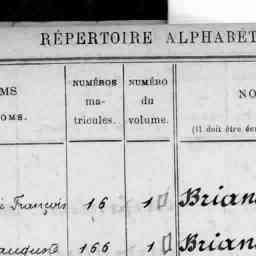 RÉPERTOIRE ALPHABÉT
MS
OMS.
NUMÉROS
ma-
tricules.
NUMÉRO
du
volume.
NO
(Il doit être éc
François 16 1 Brian
166 1 Brian